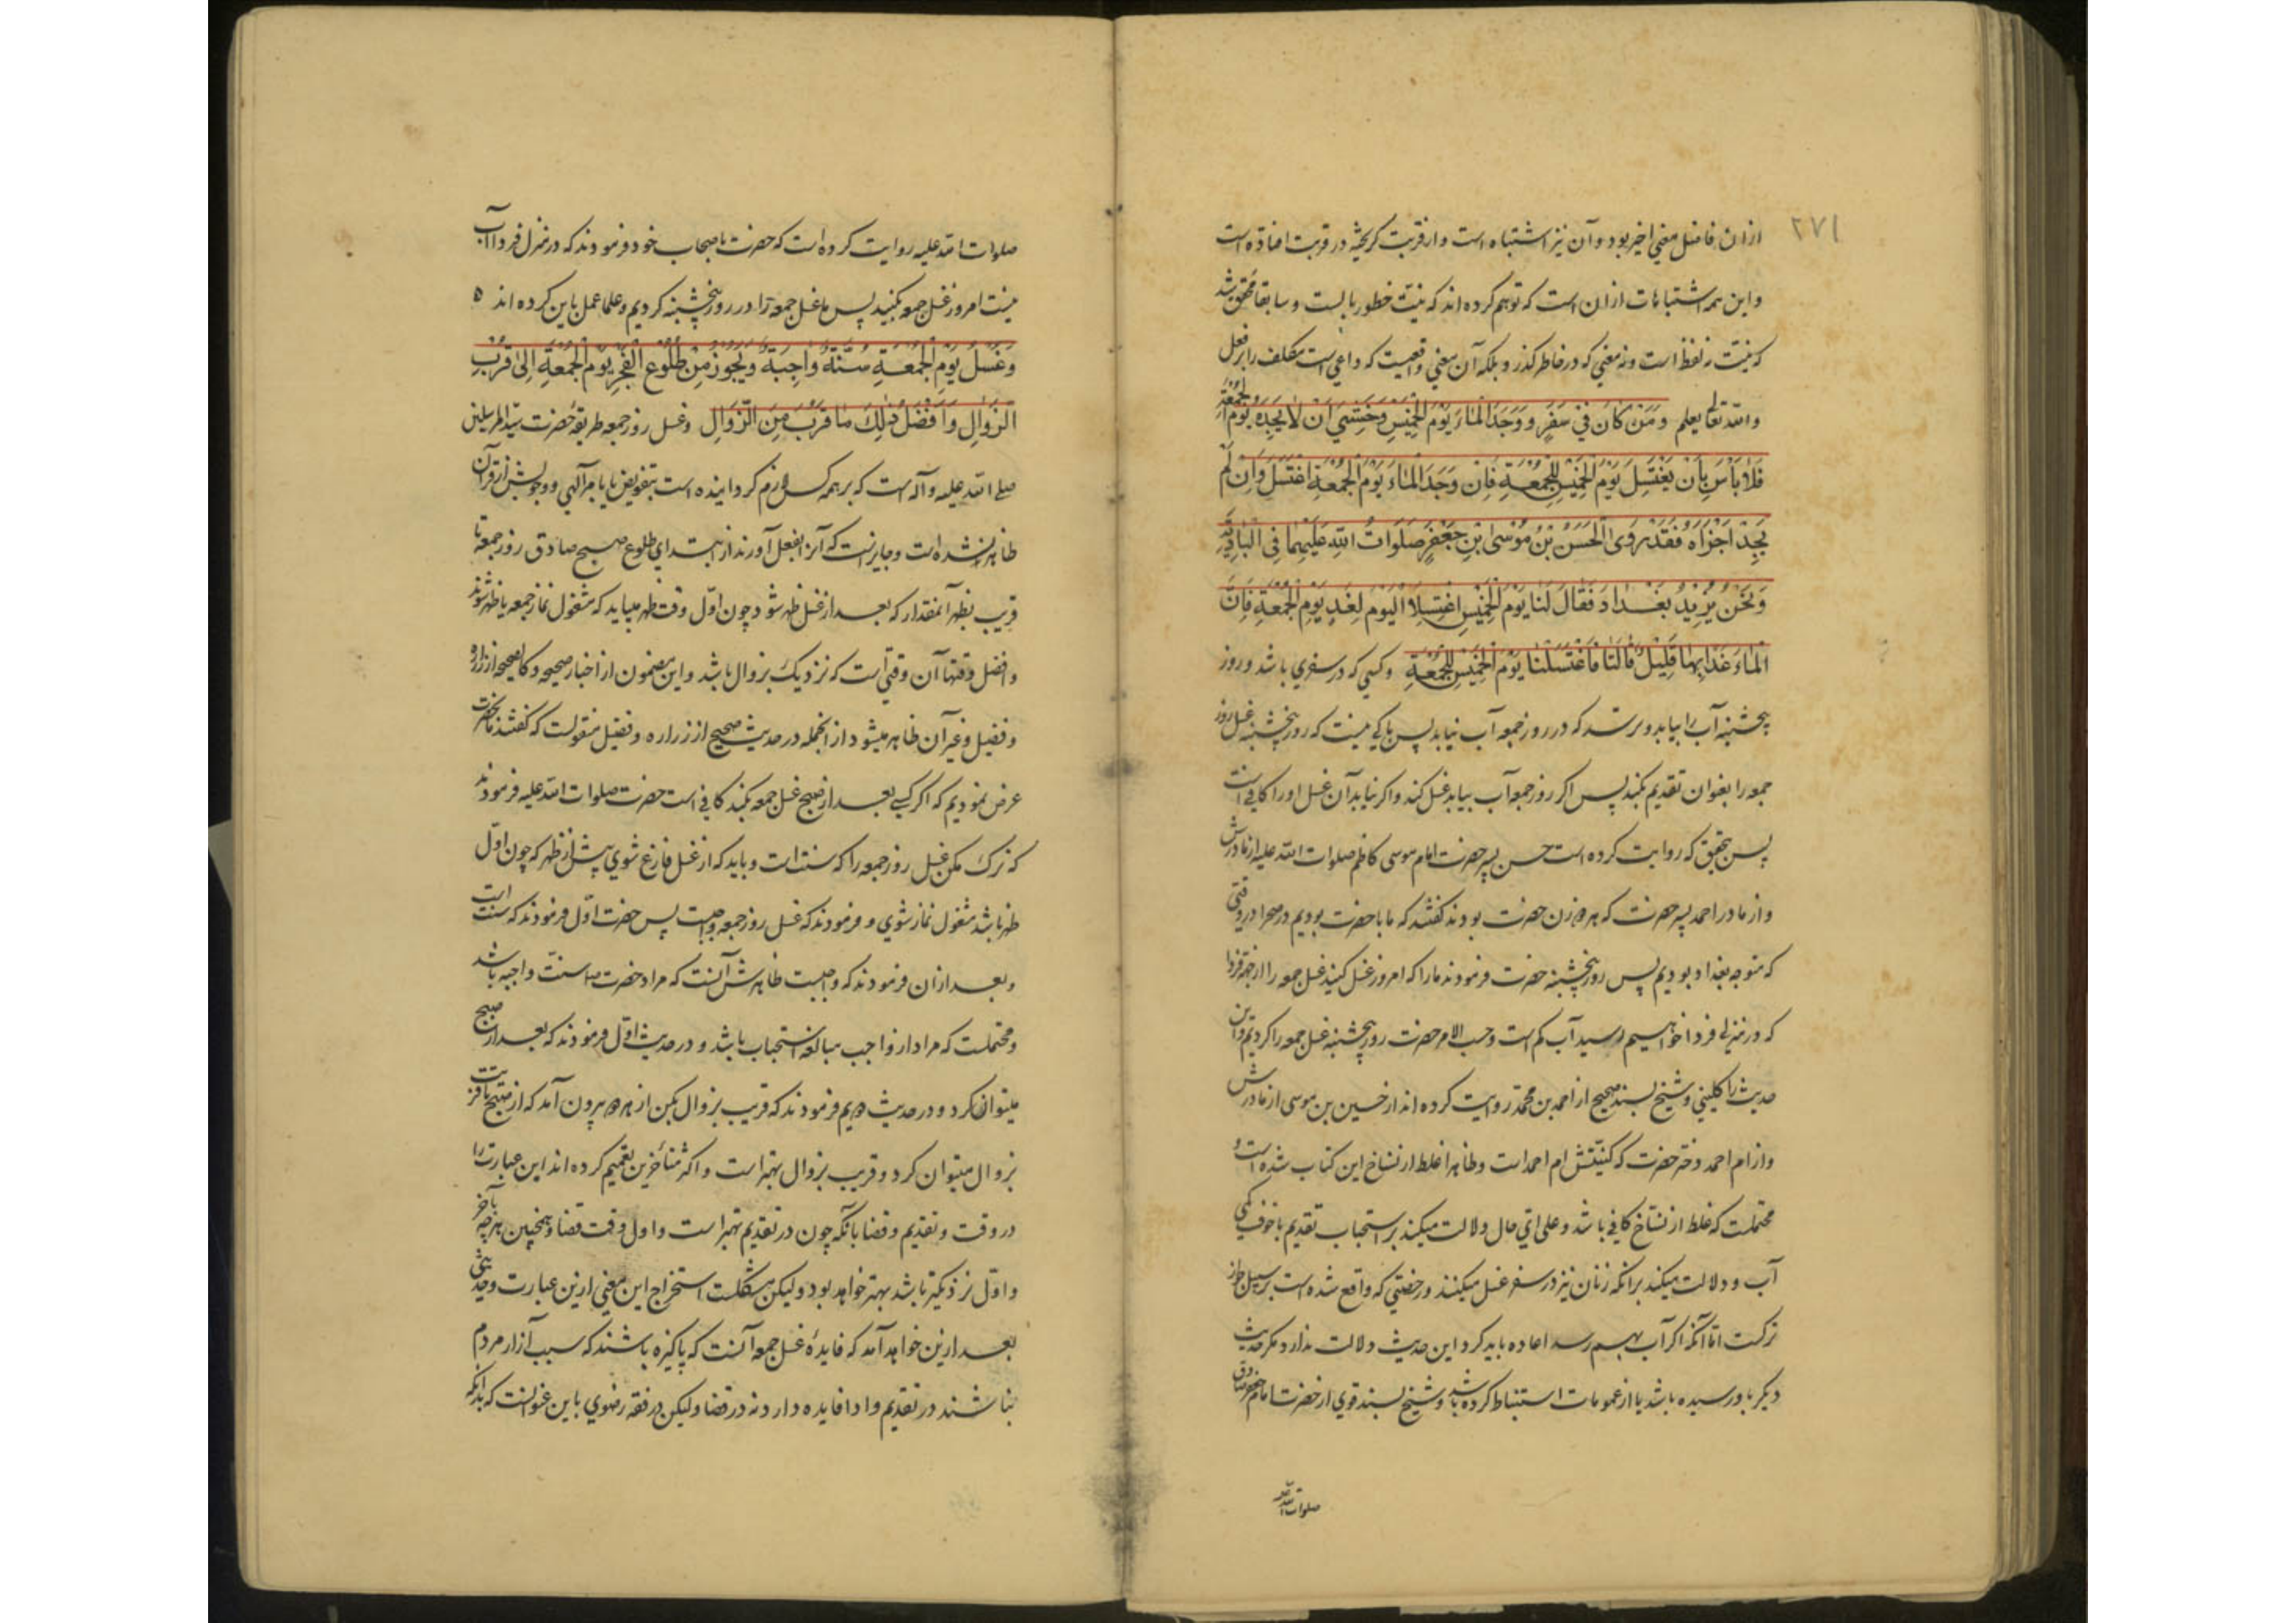 ۲۷۱
ازان فاضل معنی اخیر بود و آن نیز اشتباه است و از قربت گریخته در قربت افتاده است
و این همه اشتباهات ازان است که توهم کرده اند که نیت خطور بالست و سابقا محقق شد
که نیت نه لفظ است و نه معنی که در خاطر گذرد بلکه آن معنی واقعیست که داعی است مکلف را بر فعل
والله تعالی یعلم وَمَنْ كَانَ فِي سَفَرٍ وَوَجَدَ الْمَاءَ يَوْمَ الْخَمِيسِ وَخَشِيَ أَنْ لَا يَجِدَهُ يَوْمَ الْجُمُعَةِ
فَلَا بَأْسَ بِأَنْ يَغْتَسِلَ يَوْمَ الْخَمِيسِ لِلْجُمُعَةِ فَإِنْ وَجَدَ الْمَاءَ يَوْمَ الْجُمُعَةِ اغْتَسَلَ وَإِنْ لَمْ
يَجِدْ أَجْزَأَهُ فَقَدْ رَوَى الْحَسَنُ بْنُ مُوسَى بْنِ جَعْفَرٍ صَلَوَاتُ اللهِ عَلَيْهِمَا فِي الْبَادِيَةِ
وَنَحْنُ نُرِيدُ بَغْدَادَ فَقَالَ لَنَا يَوْمَ الْخَمِيسِ اغْتَسِلَا الْيَوْمَ لِغَدٍ يَوْمِ الْجُمُعَةِ فَإِنَّ
الْمَاءَ غَدًا بِهَا قَلِيلٌ قَالَتَا فَاغْتَسَلْنَا يَوْمَ الْخَمِيسِ لِلْجُمُعَةِ وکسی که در سفری باشد و روز
پنجشنبه آب را بیابد و برسد که در روز جمعه آب نیابد پس باکی نیست که روز پنجشنبه غسل روز
جمعه را بعنوان تقدیم بکند پس اکر روز جمعه آب بیابد غسل کند و اکر نیابد آن غسل او را کافی است
پس بتحقیق که روایت کرده است حسن پسر حضرت امام موسی کاظم صلوات الله علیه از مادرش
و از مادر احمد پسر حضرت که هر دو زن حضرت بودند گفتند که ما با حضرت بودیم در صحرا در وقتی
که متوجه بغداد بودیم پس روز پنجشنبه حضرت فرمودند ما را که امروز غسل کنید غسل جمعه را از جهة فردا
که در منزلی فردا خواهیم رسید آب کم است و حسب الامر حضرت روز پنجشنبه غسل جمعه را کردیم و این
حدیث را کلینی و شیخ بسند صحیح از احمد بن محمد روایت کرده اند از حسین بن موسی از مادرش
و از ام احمد دختر حضرت که کنیتش ام احمد است و ظاهرا غلط از نساخ این کتاب شده است و
محتملست که غلط از نساخ کافی باشد و علی ای حال دلالت میکند بر استحباب تقدیم با خوف کمی
آب و دلالت میکند بر انکه زنان نیز در سفر غسل میکنند و رخصتی که واقع شده است بر سبیل جواز
ترکست اما آنکه اکر آب بهم رسد اعاده باید کرد این حدیث دلالت ندارد مگر حدیث
دیگر باو رسیده باشد یا از عمومات استنباط کرده باشد و شیخ بسند قوی از حضرت امام جعفر صادق
صلوات الله علیه
صلوات الله علیه روایت کرده است که حضرت باصحاب خود فرمودند که در منزل فردا آب
نیست امروز غسل جمعه بکنید پس ما غسل جمعه را در روز پنجشنبه کردیم و علما عمل باین کرده اند ٥
وَغُسْلُ يَوْمِ الْجُمُعَةِ سُنَّةٌ وَاجِبَةٌ وَيَجُوزُ مِنْ طُلُوعِ الْفَجْرِ يَوْمَ الْجُمُعَةِ إِلَى قُرْبِ
الزَّوَالِ وَأَفْضَلُ ذَلِكَ مَا قَرُبَ مِنَ الزَّوَالِ وغسل روز جمعه طریقهٔ حضرت سید المرسلین
صلی الله علیه وآله است که بر همه کس لازم کردانیده است بتفویض یا بامر آلهی و وجوبش از قرآن
ظاهر نشده است و جایز است که آنرا بفعل آورند از ابتدای طلوع صبح صادق روز جمعه تا
قریب بظهر آنمقدار که بعد از غسل ظهر شود چون اول وقت ظهر میباید که مشغول نماز جمعه یا ظهر شوند
و افضل وقتها آن وقتی است که نزدیک بزوال باشد و این مضمون از اخبار صحیحه و کالصحیحه از زراره
و فضیل و غیر آن ظاهر میشود از انجمله در حدیث صحیح از زراره و فضیل منقولست که گفتند بآنحضرت
عرض نمودیم که اکر کسی بعد از صبح غسل جمعه بکند کافی است حضرت صلوات الله علیه فرمودند
که ترک مکن غسل روز جمعه را که سنت است و باید که از غسل فارغ شوی پیش از ظهر که چون اول
ظهر باشد مشغول نماز شوی و فرمودند که غسل روز جمعه واجبست پس حضرت اول فرمودند که سنت است
و بعد ازان فرمودند که واجبست ظاهرش آنست که مراد حضرت سنت واجبه باشد
و محتملست که مراد از واجب مبالغه استحباب باشد و در حدیث اول فرمودند که بعد از صبح
میتوان کرد و در حدیث دویم فرمودند که قریب بزوال بکن از هر دو بیرون آمد که از صبح تا قریب
بزوال میتوان کرد و قریب بزوال بهتر است و اکثر متأخرین تعمیم کرده اند این عبارت را
در وقت و تقدیم و قضا بانکه چون در تقدیم بهتر است و اول وقت قضا و همچنین هر چه بآخر
و اول نزدیکتر باشد بهتر خواهد بود و لیکن مشکلست استخراج این معنی ازین عبارت و حدیثی
بعد ازین خواهد آمد که فایدهٔ غسل جمعه آنست که پاکیزه باشند که سبب آزار مردم
نباشند در تقدیم و ادا فایده دارد نه در قضا و لیکن در فقه رضوی باین عنوانست که بدانکه